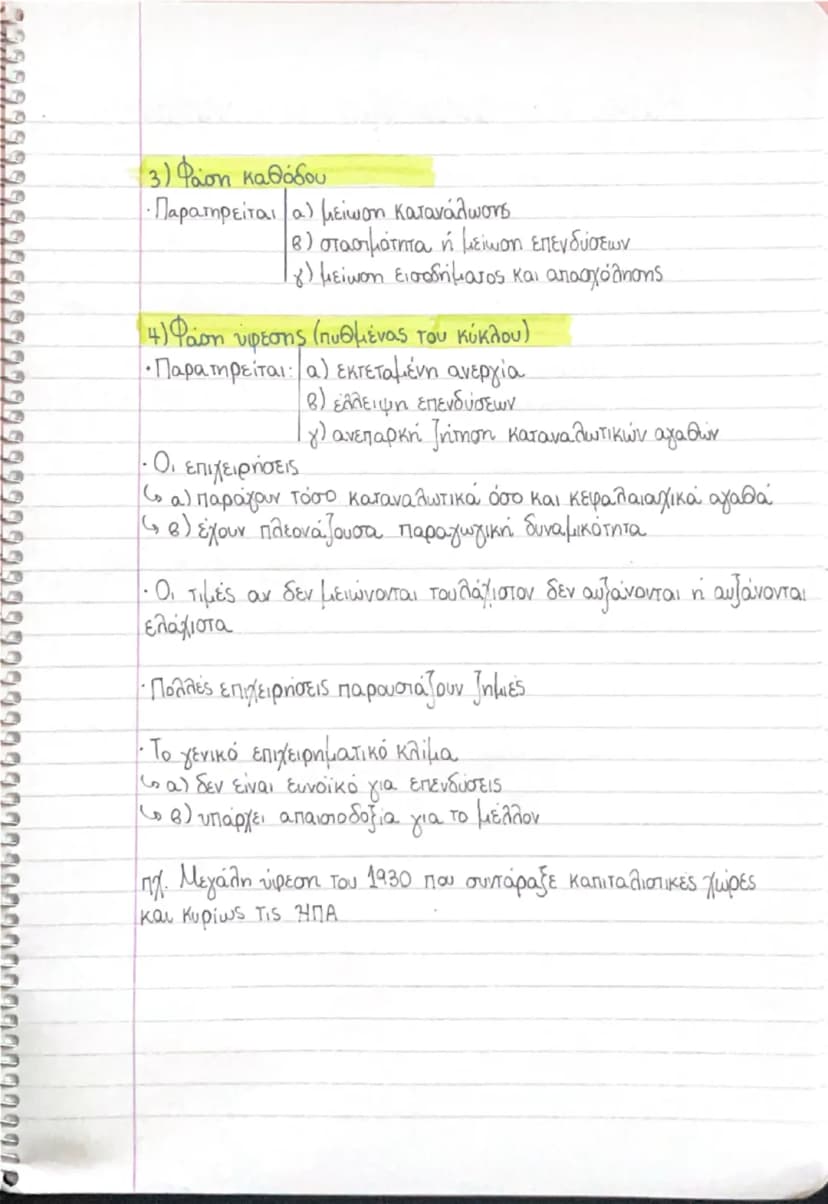 3) Φάση καθόδου
· Παρατηρείται α) μείωση κατανάλωσης
β) στασιμότητα ή μείωση επενδύσεων
γ) μείωση εισοδήματος και απασχόλησης
4) Φάση ύφεσης (πυθμένας του κύκλου)
· Παρατηρείται: α) εκτεταμένη ανεργία
β) έλλειψη επενδύσεων
γ) ανεπαρκή ζήτηση καταναλωτικών αγαθών
· Οι επιχειρήσεις
↳ α) παράγουν τόσο καταναλωτικά όσο και κεφαλαιαχικά αγαθά
↳ β) έχουν πλεονάζουσα παραγωγική δυναμικότητα
· Οι τιμές αν δεν μειώνονται τουλάχιστον δεν αυξάνονται ή αυξάνονται
ελάχιστα
· Πολλές επιχειρήσεις παρουσιάζουν ζημιές
· Το γενικό επιχειρηματικό κλίμα
↳ α) δεν είναι ευνοϊκό για επενδύσεις
↳ β) υπάρχει απαισιοδοξία για το μέλλον
πχ. Μεγάλη ύφεση του 1930 που συντάραξε καπιταλιστικές χώρες
και κυρίως τις ΗΠΑ